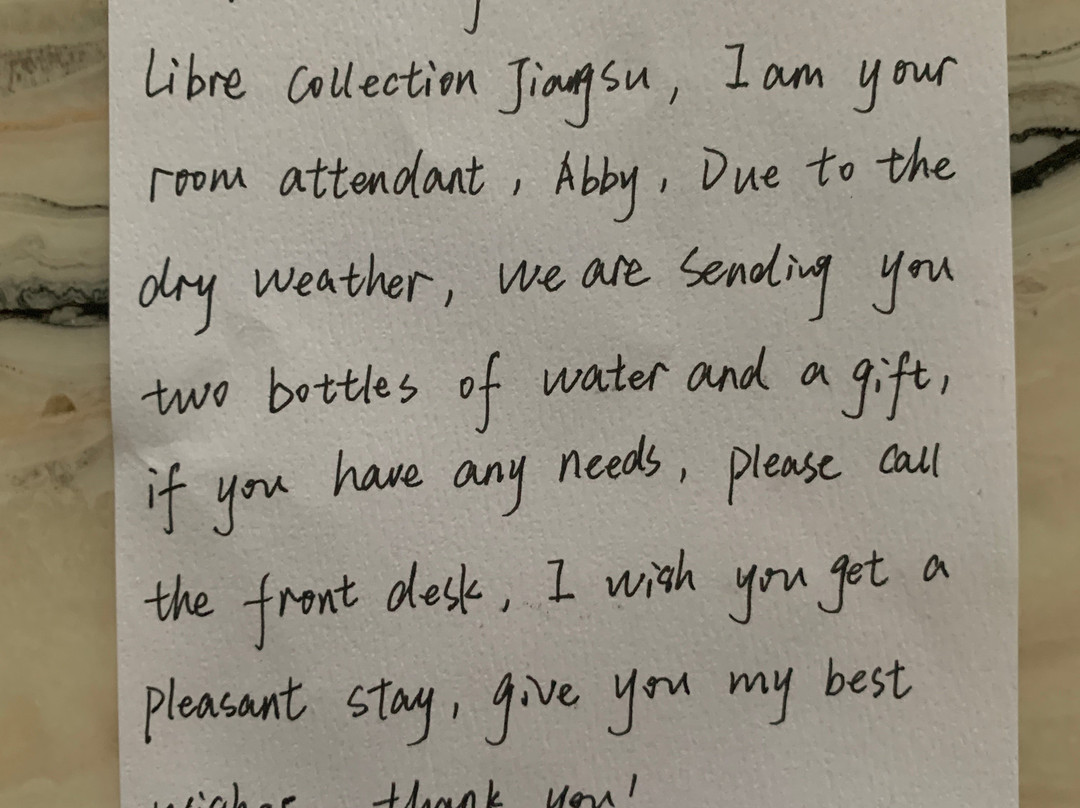 Libre Collection Jiangsu, I am your
room attendant, Abby, Due to the
dry weather, we are sending you
two bottles of water and a gift,
if you have any needs, please call
the front desk, I wish you get a
pleasant stay, give you my best
wishes thank you!